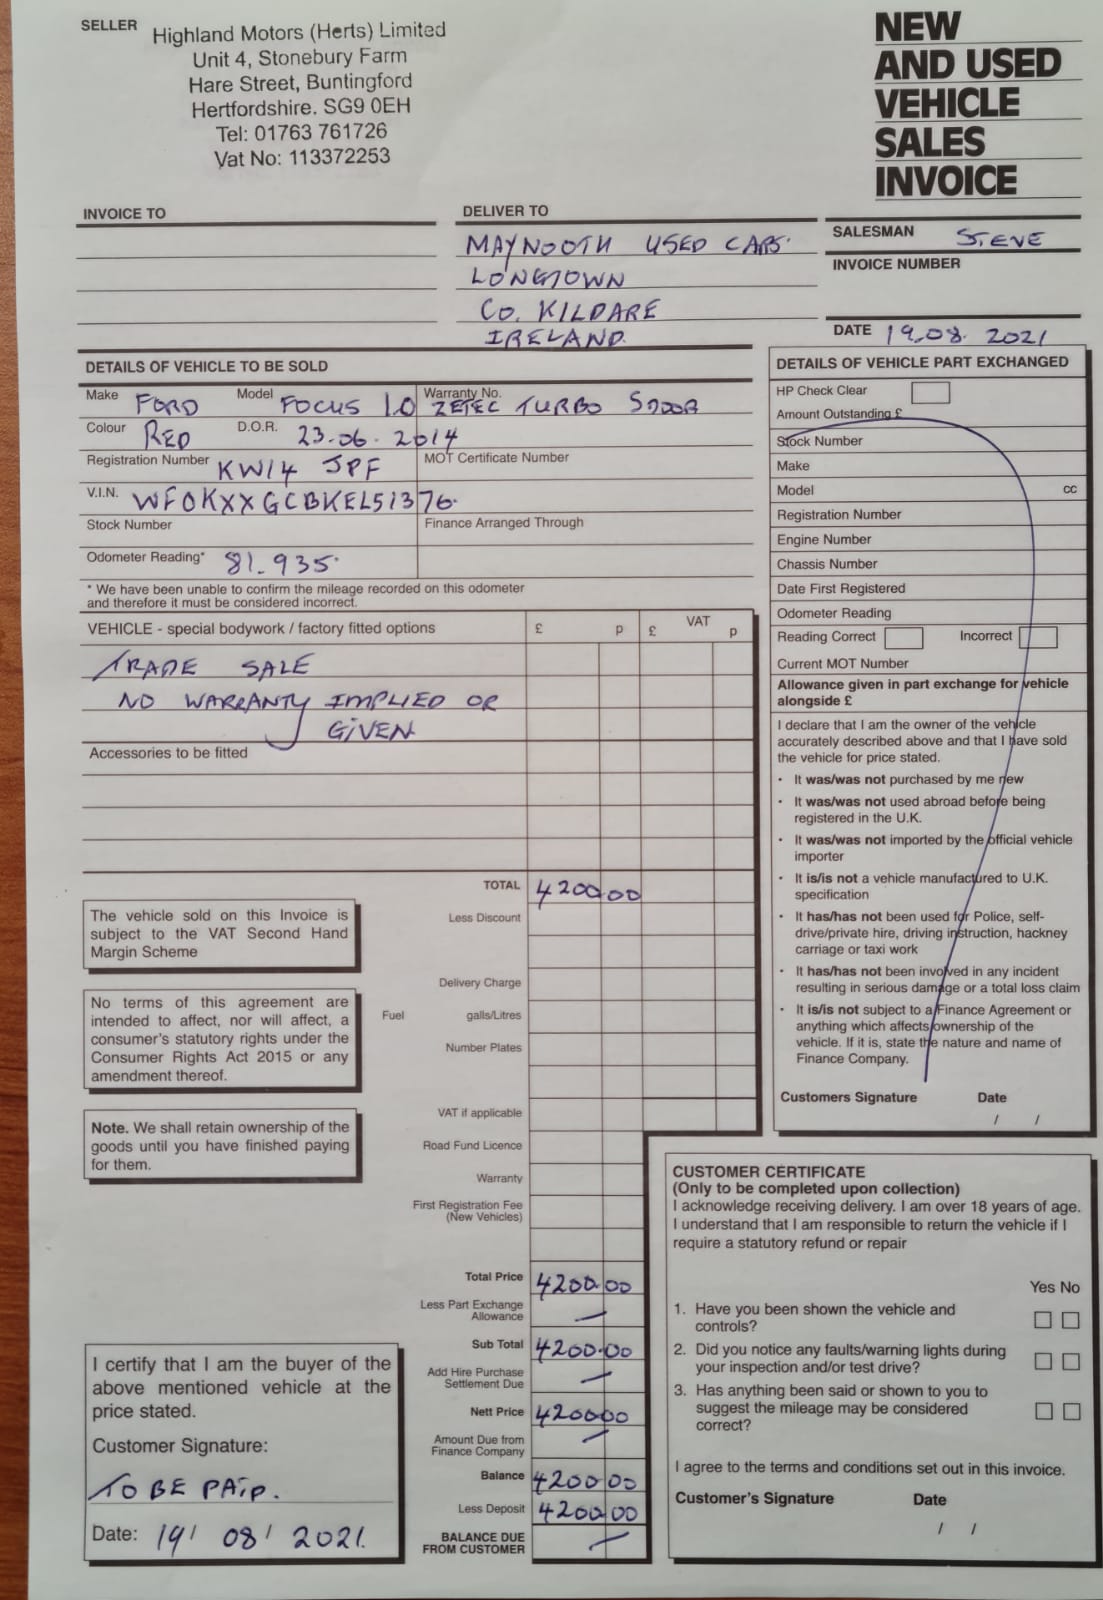 SELLER
Highland Motors (Herts) Limited
Unit 4, Stonebury Farm
Hare Street, Buntingford
Hertfordshire. SG9 0EH
Tel: 01763 761726
Vat No: 113372253
NEW
AND USED
VEHICLE
SALES
INVOICE
INVOICE TO
DELIVER TO
MAYNOOTH USED CARS.
LONGTOWN
CO. KILDARE
IRELAND.
SALESMAN STEVE
INVOICE NUMBER
DATE 19.08.2021
DETAILS OF VEHICLE TO BE SOLD
Make FORD Model FOCUS 1.0 Warranty No. ZETEC TURBO 5DOOR
Colour RED D.O.R. 23.06.2014
Registration Number KW14 JPF MOT Certificate Number
V.I.N. WF0KXXGCBKEL51376.
Stock Number Finance Arranged Through
Odometer Reading* 81.935.
* We have been unable to confirm the mileage recorded on this odometer
and therefore it must be considered incorrect.
VEHICLE - special bodywork / factory fitted options £ p £ VAT p
TRADE SALE
NO WARRANTY IMPLIED OR
GIVEN
Accessories to be fitted
TOTAL 4200.00
The vehicle sold on this Invoice is
subject to the VAT Second Hand
Margin Scheme
No terms of this agreement are
intended to affect, nor will affect, a
consumer's statutory rights under the
Consumer Rights Act 2015 or any
amendment thereof.
Note. We shall retain ownership of the
goods until you have finished paying
for them.
Less Discount
Delivery Charge
Fuel galls/Litres
Number Plates
VAT if applicable
Road Fund Licence
Warranty
First Registration Fee
(New Vehicles)
Total Price 4200.00
Less Part Exchange
Allowance —
Sub Total 4200.00
Add Hire Purchase
Settlement Due —
Nett Price 420000
Amount Due from
Finance Company —
Balance 4200.00
Less Deposit 4200.00
BALANCE DUE
FROM CUSTOMER —
I certify that I am the buyer of the
above mentioned vehicle at the
price stated.
Customer Signature:
TO BE PAID.
Date: 19/ 08/ 2021.
DETAILS OF VEHICLE PART EXCHANGED
HP Check Clear
Amount Outstanding £
Stock Number
Make
Model cc
Registration Number
Engine Number
Chassis Number
Date First Registered
Odometer Reading
Reading Correct Incorrect
Current MOT Number
Allowance given in part exchange for vehicle
alongside £
I declare that I am the owner of the vehicle
accurately described above and that I have sold
the vehicle for price stated.
• It was/was not purchased by me new
• It was/was not used abroad before being
registered in the U.K.
• It was/was not imported by the official vehicle
importer
• It is/is not a vehicle manufactured to U.K.
specification
• It has/has not been used for Police, self-
drive/private hire, driving instruction, hackney
carriage or taxi work
• It has/has not been involved in any incident
resulting in serious damage or a total loss claim
• It is/is not subject to a Finance Agreement or
anything which affects ownership of the
vehicle. If it is, state the nature and name of
Finance Company.
Customers Signature Date
/ /
CUSTOMER CERTIFICATE
(Only to be completed upon collection)
I acknowledge receiving delivery. I am over 18 years of age.
I understand that I am responsible to return the vehicle if I
require a statutory refund or repair
Yes No
1. Have you been shown the vehicle and
controls?
2. Did you notice any faults/warning lights during
your inspection and/or test drive?
3. Has anything been said or shown to you to
suggest the mileage may be considered
correct?
I agree to the terms and conditions set out in this invoice.
Customer's Signature Date
/ /